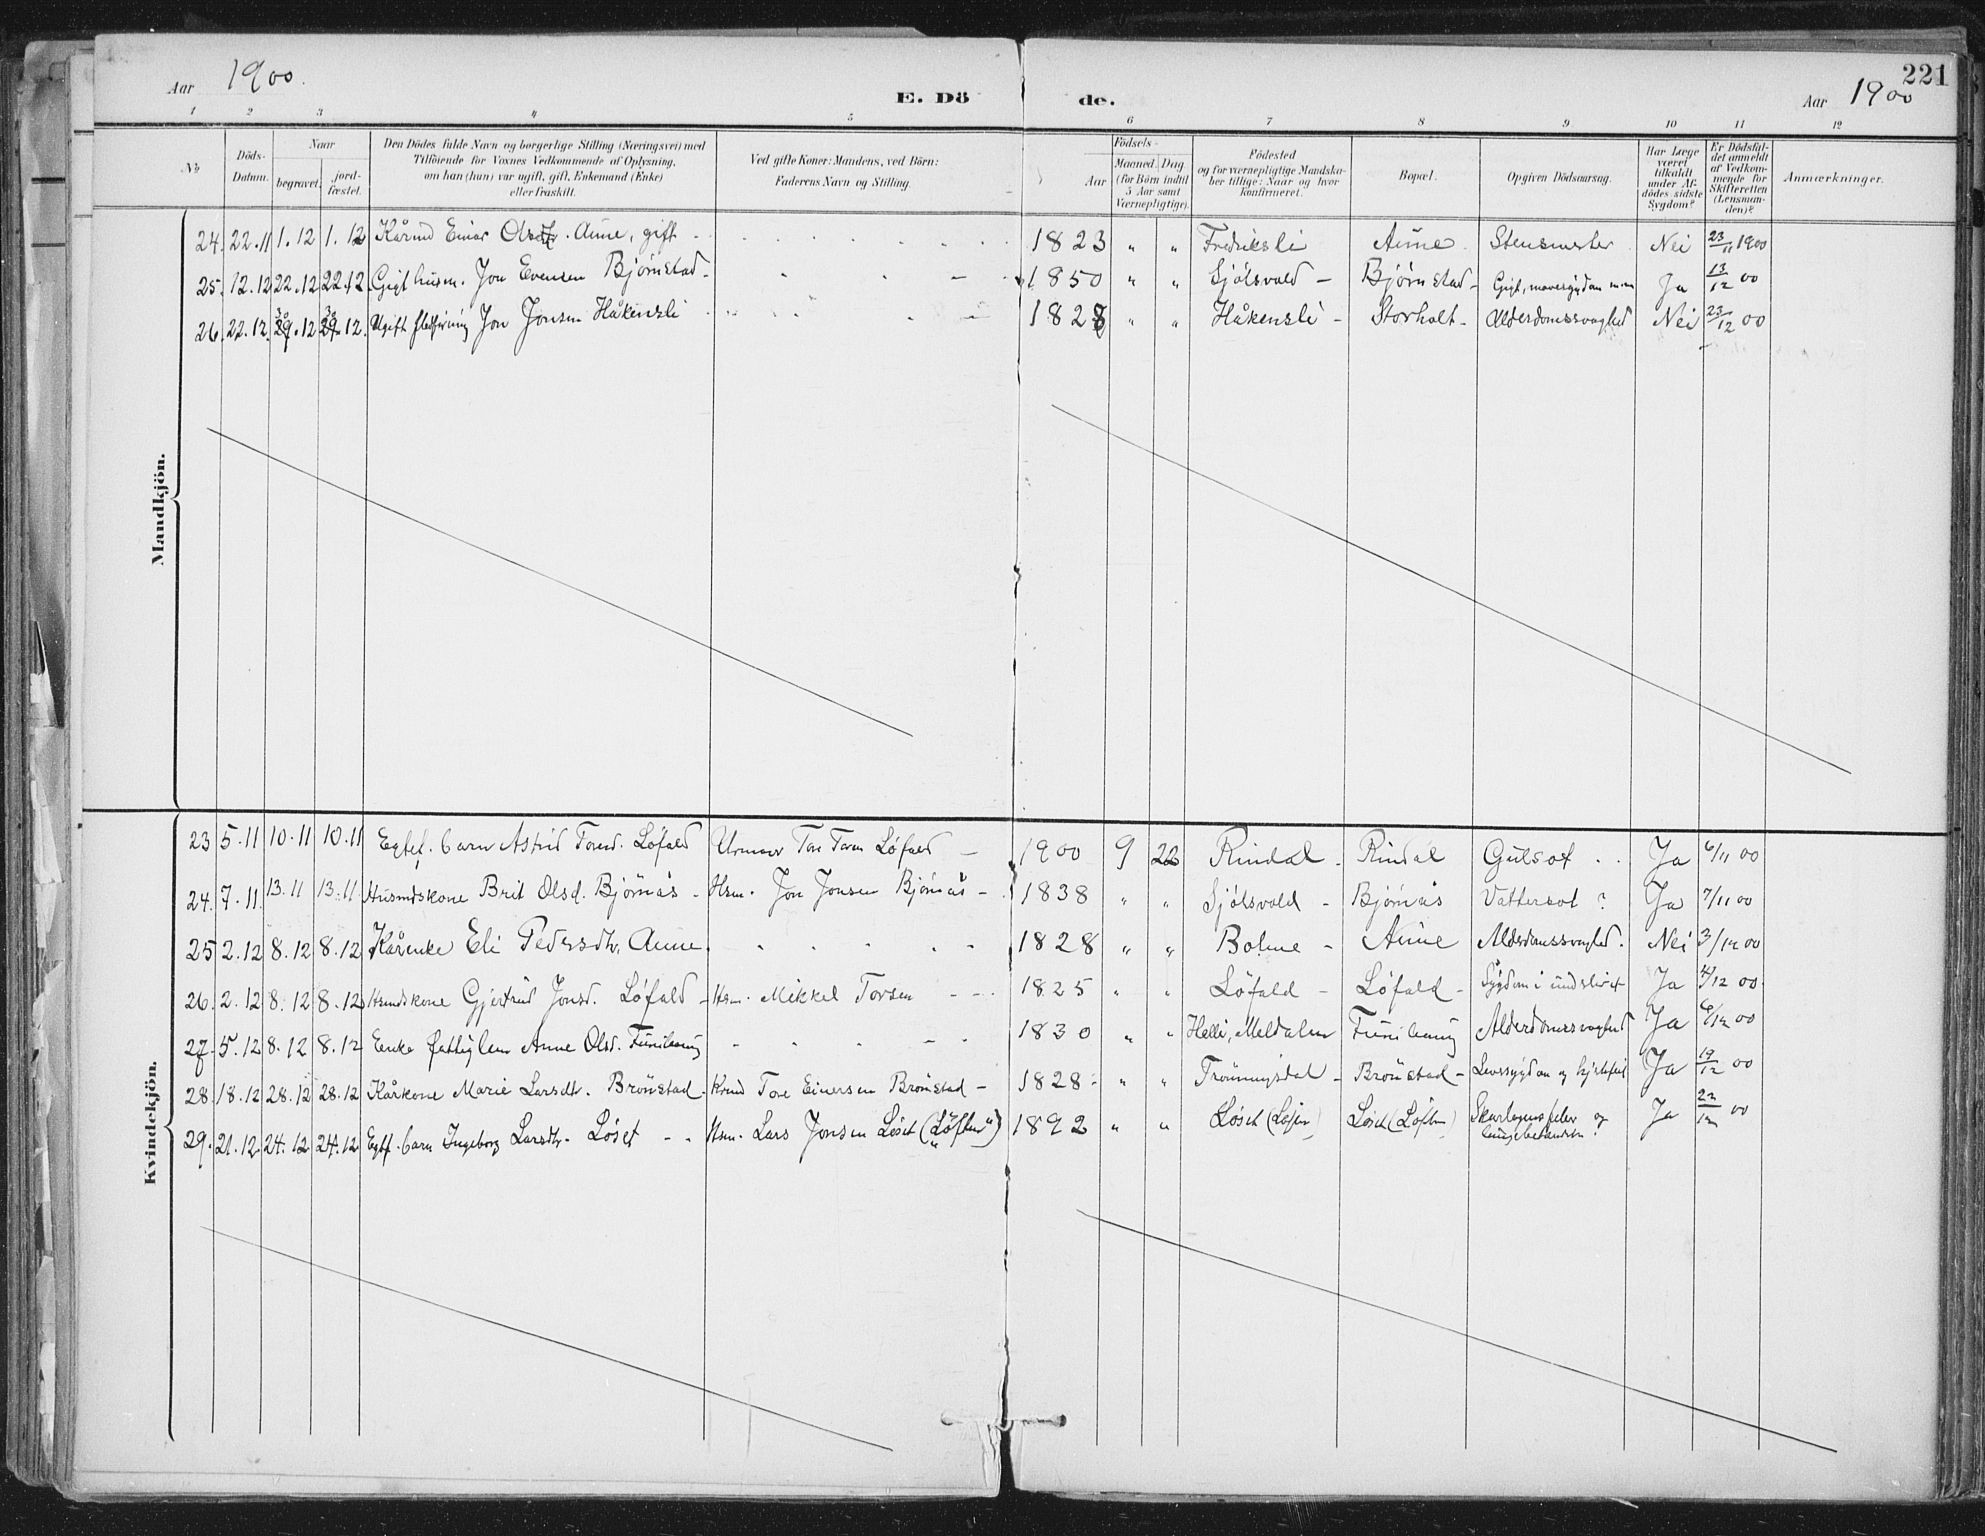 221
Aar 1900. E. Dö de. Aar 1900
1 2 3 4 5 6 7 8 9 10 11 12
№
Döds-Datum.
Naar
begravet.
jord-fæstet.
Den Dödes fulde Navn og borgerlige Stilling (Næringsvei) med
Tilföiende for Voxnes Vedkommende af Oplysning,
om han (hun) var ugift, gift, Enkemand (Enke)
eller fraskilt.
Ved gifte Koner: Mandens, ved Börn:
Faderens Navn og Stilling.
Födsels-
Aar
Maaned. Dag.
(for Börn indtil
5 Aar samt
Værnepligtige).
Födested
og for værnepligtige Mandska-
ber tillige: Naar og hvor
konfirmeret.
Bopæl.
Opgiven Dödsaarsag.
Har Læge
været
tilkaldt
under Af-
dödes sidste
Sygdom?
Er Dödsfal-
det anmeldt
af Vedkom-
mende for
Skifteretten
(Lensman-
den)?
Anmærkninger.
Mandkjön.
24. 22.11 1.12 1.12 Kårmd Einar Aune, gift 1823 " " Fredriksli Aune Nei 23/11 1900
25. 12.12 22.12 22.12 Gift husm. Jon Evensen Bjørnstad 1850 " " Sjølsvold Bjørnstad Gigt, mavesygdom m.m Ja 13/12 00
26. 22.12. 29.12 29.12. Ugift Jon Jonsen Håkensli 1828 " " Håkensli Storholt Alderdomssvaghed Nei 23/12 00
Kvindekjön.
23 5.11 10.11 10.11 Egtef. barn Astrid Torsd. Løfald Urmager Tore Løfald 1900 9 22 Rindal Rindal Gulsot Ja 6/11 00
24. 7.11. 13.11 13.11 Husmdskone Brit Olsd. Bjørnås Hsm. Jon Jonsen Bjørnås 1838 " " Sjølsvold Bjørnås Vattersot ? Ja 7/11 00
25 2.12 8.12 8.12 Kårenke Eli Pedersdtr. Aune 1828 " " Bolme Aune Alderdomssvaghed. Nei 3/12 00
26. 2.12 8.12 8.12 Hsmdskone Gjertrud Jonsd. Løfald Hsm. Mikkel Torsen 1825 " " Løfald Løfald Sygdom i underlivet Ja 4/12 00
27. 5.12 8.12 8.12 Enke fattiglem Anne Olsd. 1830 " " Helli, Meldalen Alderdomssvaghed Ja 6/12 00
28. 18.12 28.12 28.12 Kårkone Marie Larsdt. Brønstad Krmd Tore Einersen Brønstad 1828 " " Trønningsdal Brønstad Leversygdom og hjertefeil Ja 19/12 00
29. 21.12 24.12 24.12 Egtf. barn Ingeborg Larsdtr. Løset Hsm. Lars Jonsen Løset ("Løften") 1892 " " Løset (Løften) Løset (Løften) Skarlagensfeber og lungebetændelse? Ja 22/12 00